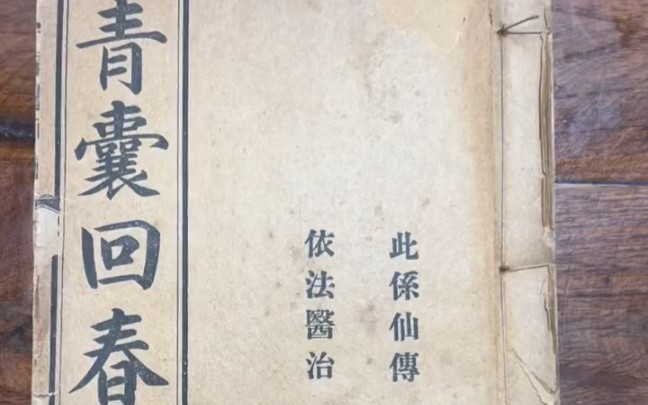 此係仙傳
依法醫治
青囊回春